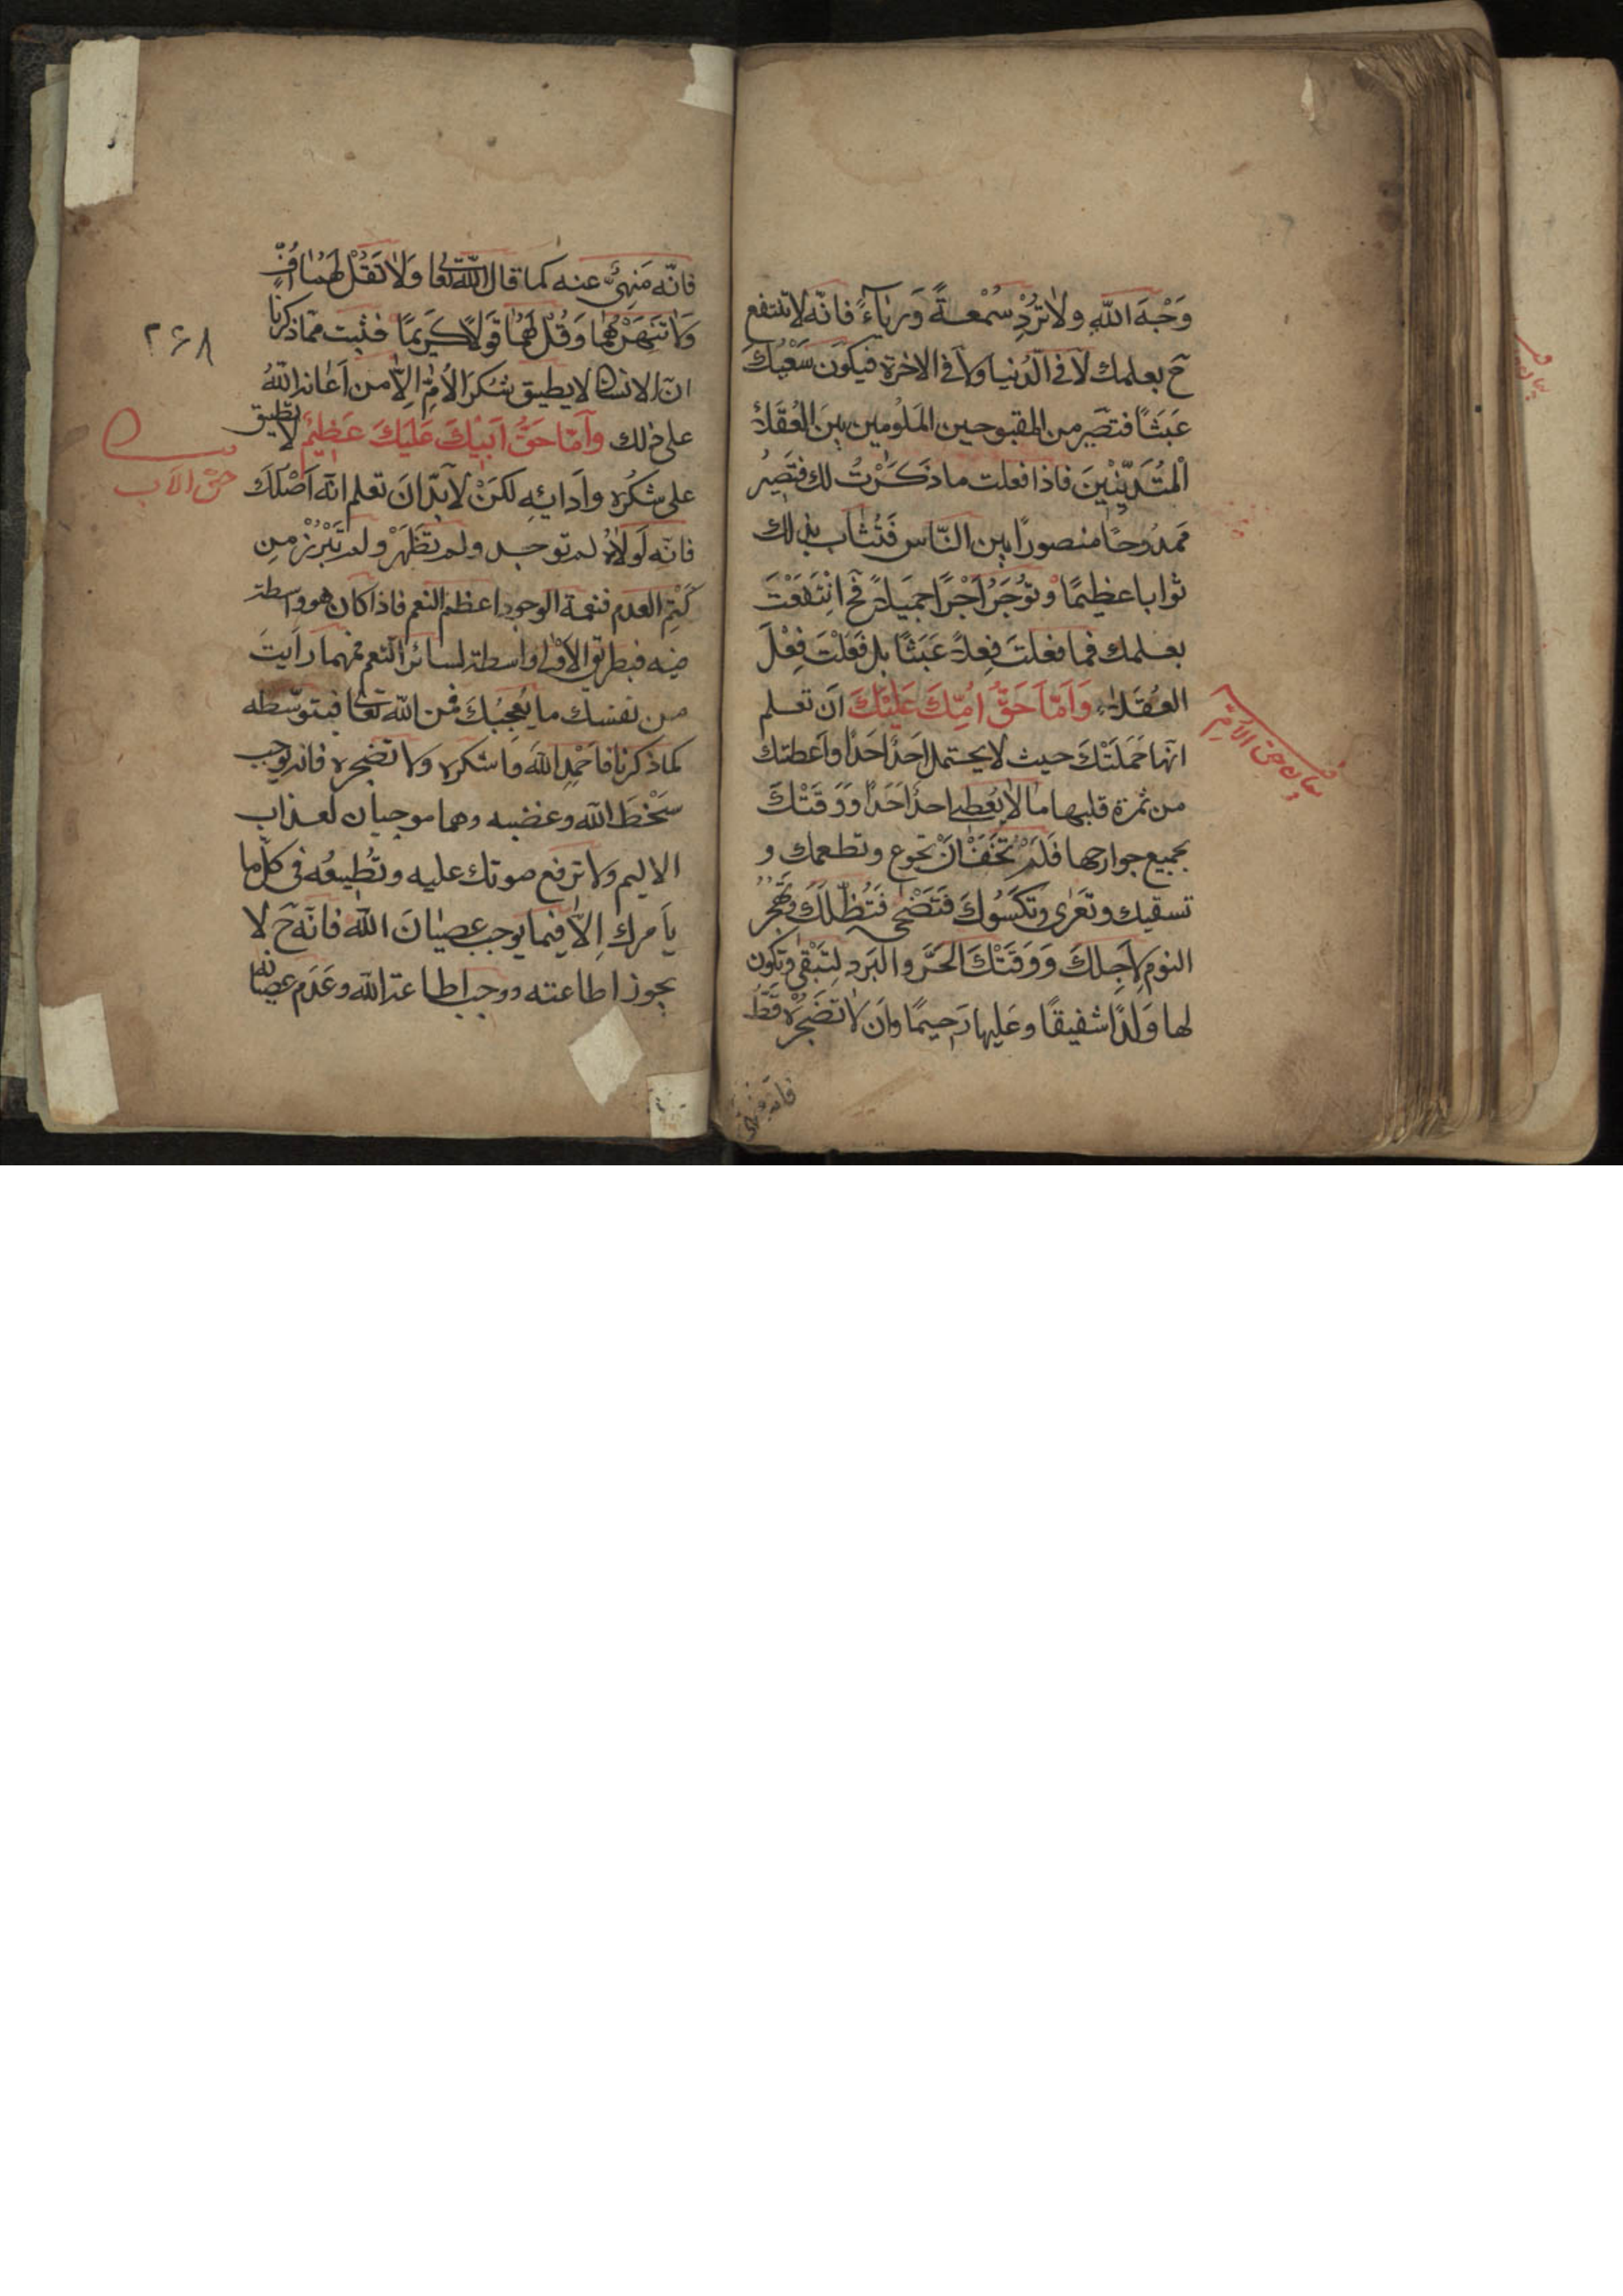 وَجْهَ اللّٰهِ ولا تُرِدْ سُمْعَةً وَرِيَآءً فانّه لا تنتفع
حَ بعلمك لا فى الدُّنيا ولا فى الاخرة فيكون سَعْيُكَ
عَبَثًا فتصير من المقبوحين المَلُومين بين العُقَلاءِ
الْمُتَدَيِّنِيْنَ فاذا فعلت ما ذَكَرْتُ لك فتصِيرُ
مَمدُوحًا منصورًا بين النّاس فَتُثَاب بذلك
ثوابا عظيمًا وتُؤجَرُ اَجْرًا جميلاً فَحَ انْتَفَعْتَ
بعلمك فما فعلتَ فِعلاً عَبَثًا بل فَعَلْتَ فِعْلَ
العُقَلاءِ وَاَمّا حَقُّ اُمِّكَ عَلَيْكَ اَن تعلم
انّها حَمَلَتْكَ حيث لا يحتمل احَدٌ احَدًا واَعطتك
من ثمرة قلبها ما لا يُعْطى احدٌ احَدًا وَوَقَتْكَ
بجميع جوارحها فَلَمْ تَخَفْ اَنْ تجوع وتطعمك و
تسقيك وتَعْرٰى وتَكْسُوكَ فَتَضْحٰى فَتُظِلَّكَ وتَهْجُرُ
النوم لِاَجلِكَ وَوَقَتْكَ الحَرَّ والبَرد لِتَبْقٰى وتكون
لها وَلَدًا شفيقًا وعَليها رَحيمًا واَن لا تُضْجِرَه قَطُّ
بيان حق الامّ
فانّه منهى
فانّه مَنهِىٌّ عنه كما قال اللّٰه تعا وَلا تَقُلْ لَهُمَا اُفٍّ
وَلا تَنْهَرْهُمَا وَقُلْ لَهُمَا قَوْلاً كَرِيمًا فثبت ممّا ذكرنا
انّ الانسان لا يطيق شُكرَ الاُمِّ اِلاّ من اَعانه اللّٰهُ
على ذلك وَاَمّا حَقُّ اَبيْكَ عَلَيكَ عَظِيْمٌ لا تطيق
على شكْرِه واَدائِهِ لكنْ لا بدّ اَنْ تعلم انّه اَصْلُكَ
فانّه لَولاهُ لم توجد ولم تَظْهَرْ ولم تَبْرُزْ من
كَتمِ العدم فنعمة الوجود اعظم النعم فاذا كان هو واسطة
فيه فبطريق الاَوْلٰى واسطة لسائر النّعم فمهما رَاَيتَ
من نفسك ما يُعجِبُكَ فمن اللّٰه تعا فبتوسّطه
لما ذكرنا فاَحْمِدِ اللّٰهَ واشكره ولا تضجره فانه يوجب
سَخْطَ اللّٰه وغضبه وهما موجبان لعذاب
الاليم ولا ترفع صوتك عليه وتُطِيعُه فى كلّ ما
يَاْمرك اِلاّ فيما يوجب عصيٰانَ اللّٰهِ فانّه حَ لا
يجوز اطاعته ووجب اطاعة اللّٰه وعَدَم عصيانه
٢٦٨
حقّ الاَب